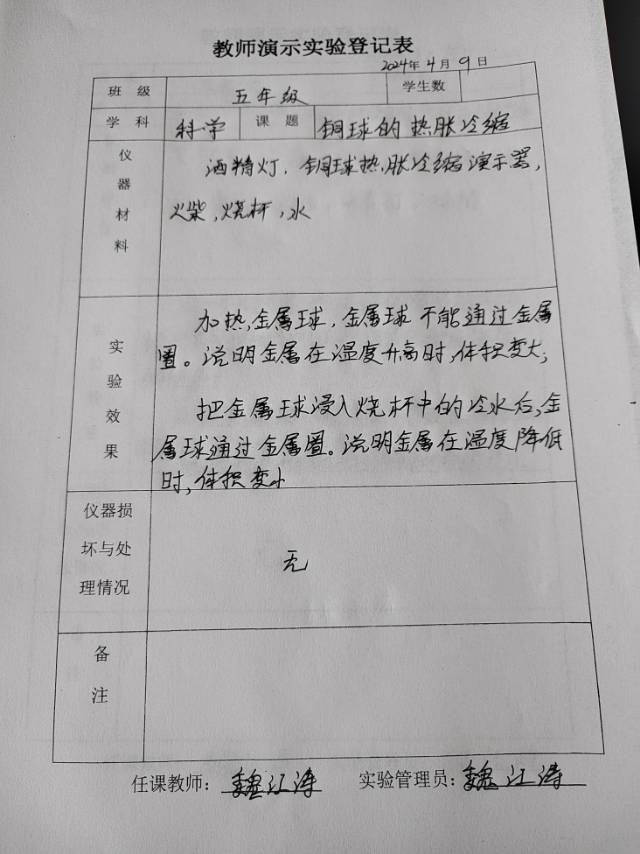 教师演示实验登记表
2024年4月9日
班级 五年级 学生数
学科 科学 课题 铜球的热胀冷缩
仪器材料
酒精灯,铜球热胀冷缩演示器,
火柴,烧杯,水
实验效果
加热金属球,金属球不能通过金属
圈。说明金属在温度升高时,体积变大;
把金属球浸入烧杯中的冷水后,金
属球通过金属圈。说明金属在温度降低
时,体积变小
仪器损
坏与处
理情况
无
备注
任课教师:魏江涛 实验管理员:魏江涛